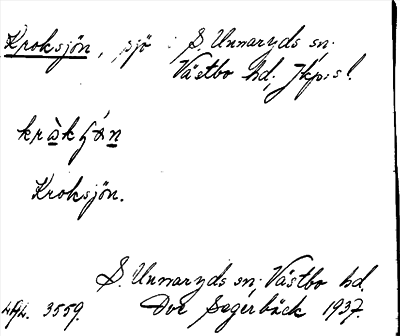 Kroksjön, sjö i S. Unnaryds sn.
Västbo hd. Jkp:s l.
Kroksjön.
S. Unnaryds sn, Västbo hd.
3559. Segerbäck 1937.